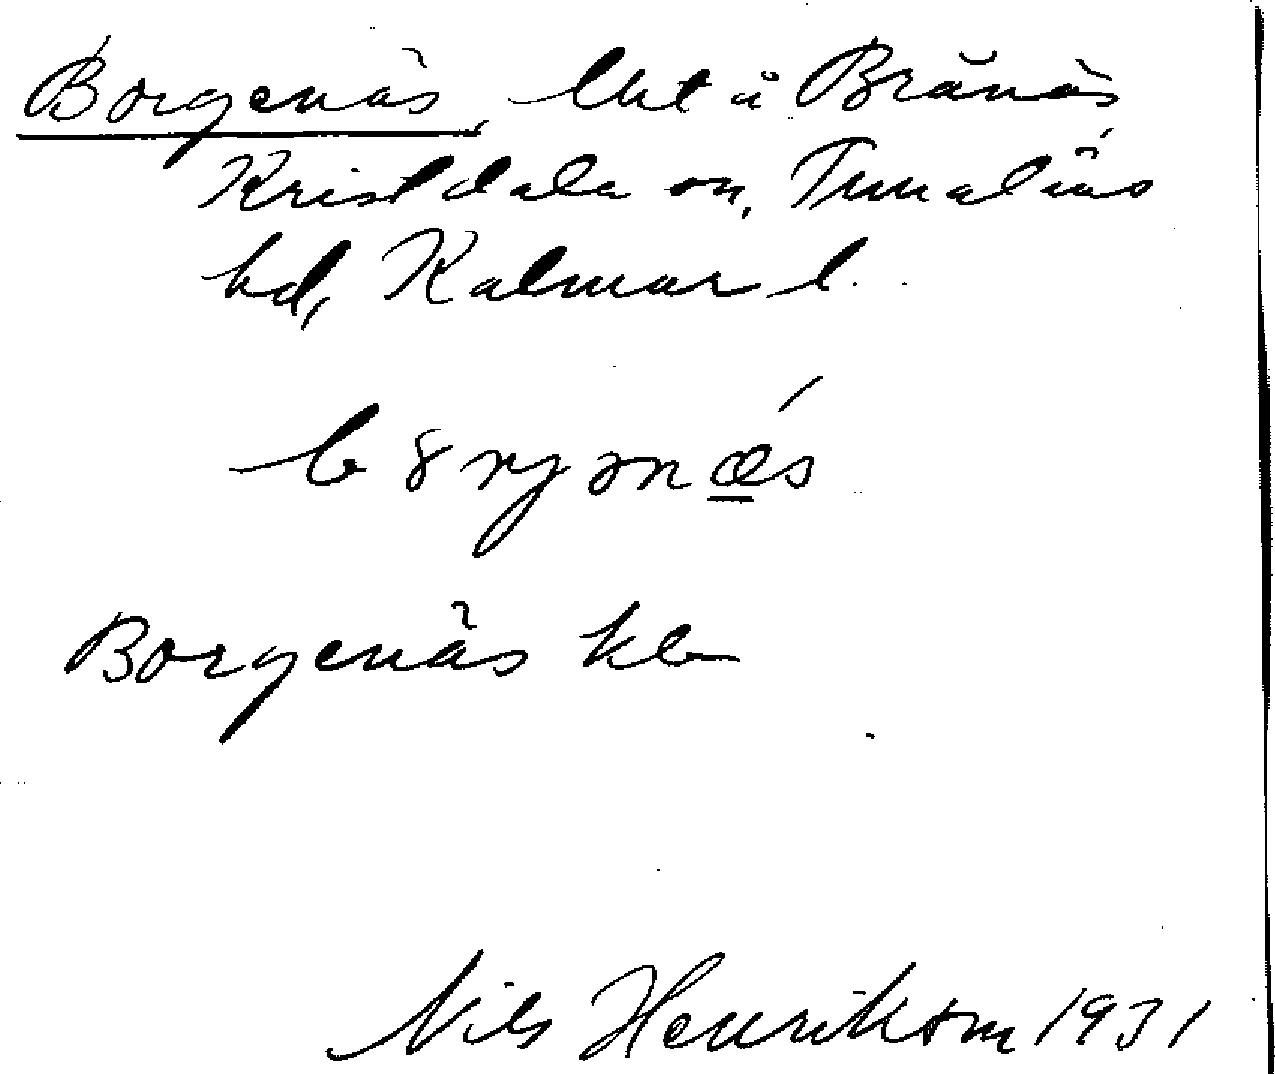 Borgenäs, lht å Brånäs
Kristdala sn, Tunaläns
hd, Kalmar l.
b8rgənæs
Borgenäs kb
Nils Henrikson 1931